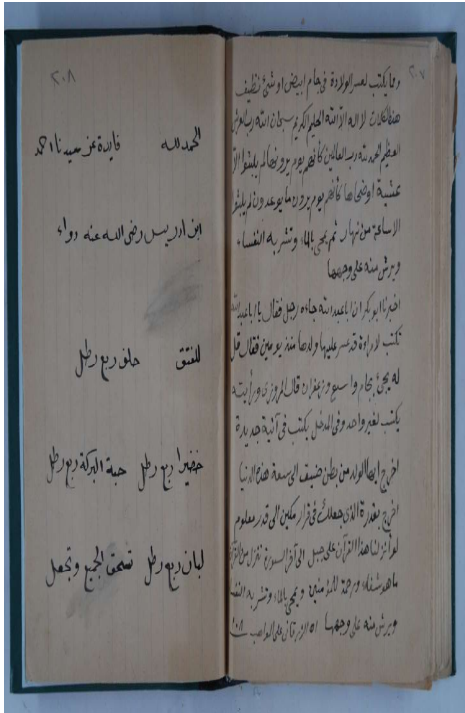 ٢٠٧
ومما يكتب لعسر الولادة في جام ابيض او شئ نظيف
هذه الكلمات لا اله الا الله الحليم الكريم سبحان الله رب العرش
العظيم الحمد لله رب العالمين كأنهم يوم يرونها لم يلبثوا الا
عشية او ضحاها كأنهم يوم يرون ما يوعدون لم يلبثوا
الا ساعة من نهار ثم يمحى بالماء وتشربه النفساء
ويرش منه على وجهها
اخبرنا ابو بكر ان ابا عبد الله جاءه رجل فقال يا ابا عبد الله
تكتب لامراءة قد عسر عليها ولدها منذ يومين فقال قل
له يجئ بجام واسع وزعفران قال المروزي ورأيته
يكتب لغير واحد وفي المدخل يكتب في آنية جديدة
اخرج ايها الولد من بطن ضيقة الى سعة هذه الدنيا
اخرج بقدرة الذي جعلك في قرار مكين الى قدر معلوم
لو انزلنا هذا القرآن على جبل الى آخر السورة وننزل من القرآن
ما هو شفاء ورحمة للمؤمنين ويمحى بالماء وتشربه النفساء
ويرش منه على وجهها اه الزرقاني على المواهب
٢٠٨
الحمد لله فايدة عن سيدنا احمد
ابن ادريس رضى الله عنه دواء
للفتق حلف ربع رطل
خضيرا ربع رطل حبة البركة ربع رطل
لبان ربع رطل تسحق الجميع وتجعل